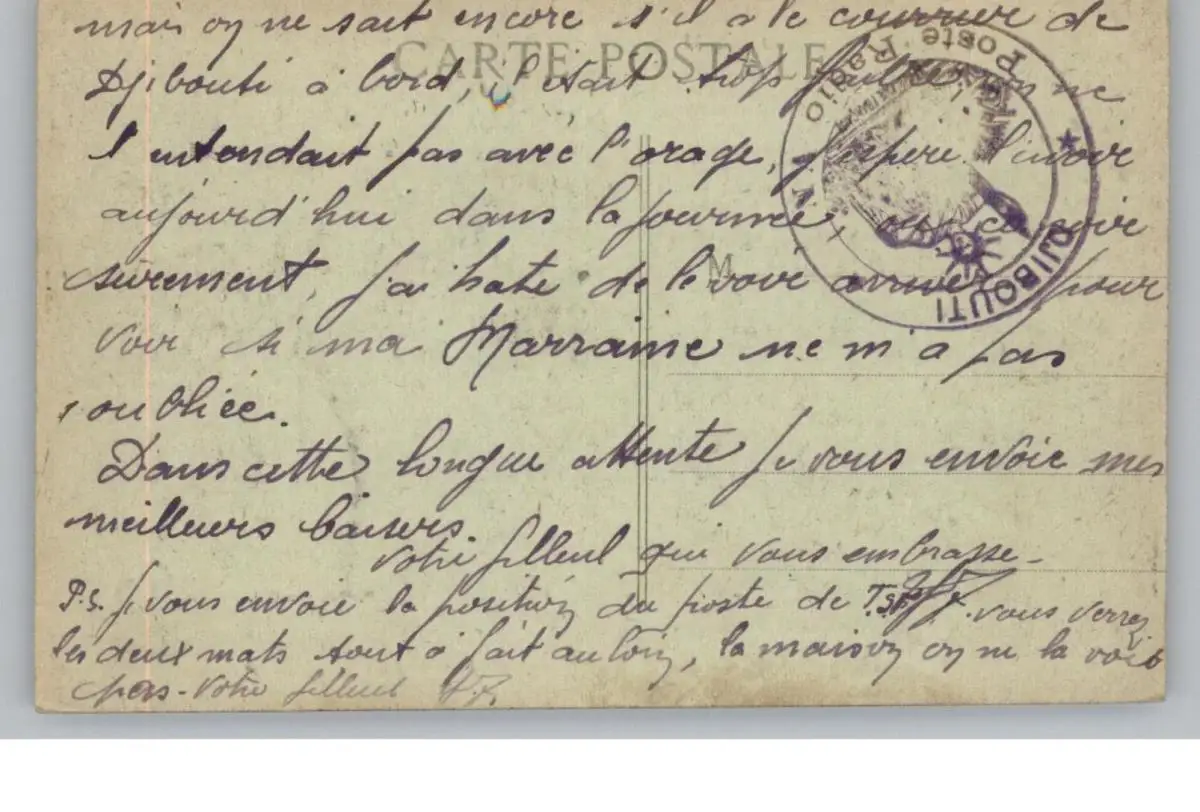 mais on ne sait encore s'il a le courrier de
CARTE POSTALE
Djibouti à bord, il était trop faible on ne
l'entendait pas avec l'orage, j'espère l'avoir
aujourd'hui dans la journée ou ce soir
surement, j'ai hate de le voir arriver pour
voir si ma Marraine ne m'a pas
oubliée.
Dans cette longue attente je vous envoie mes
meilleurs baisers.
Votre filleul qui vous embrasse
P.S. Je vous envoie la position du poste de T.S.F. vous verrez
les deux mats tout à fait au loin, la maison on ne la voit
pas - Votre filleul
Poste Radio
DJIBOUTI